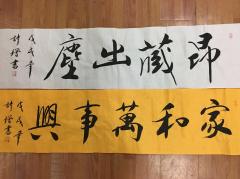 昂藏出塵
戊戌年
書
家和萬事興
戊戌年
書